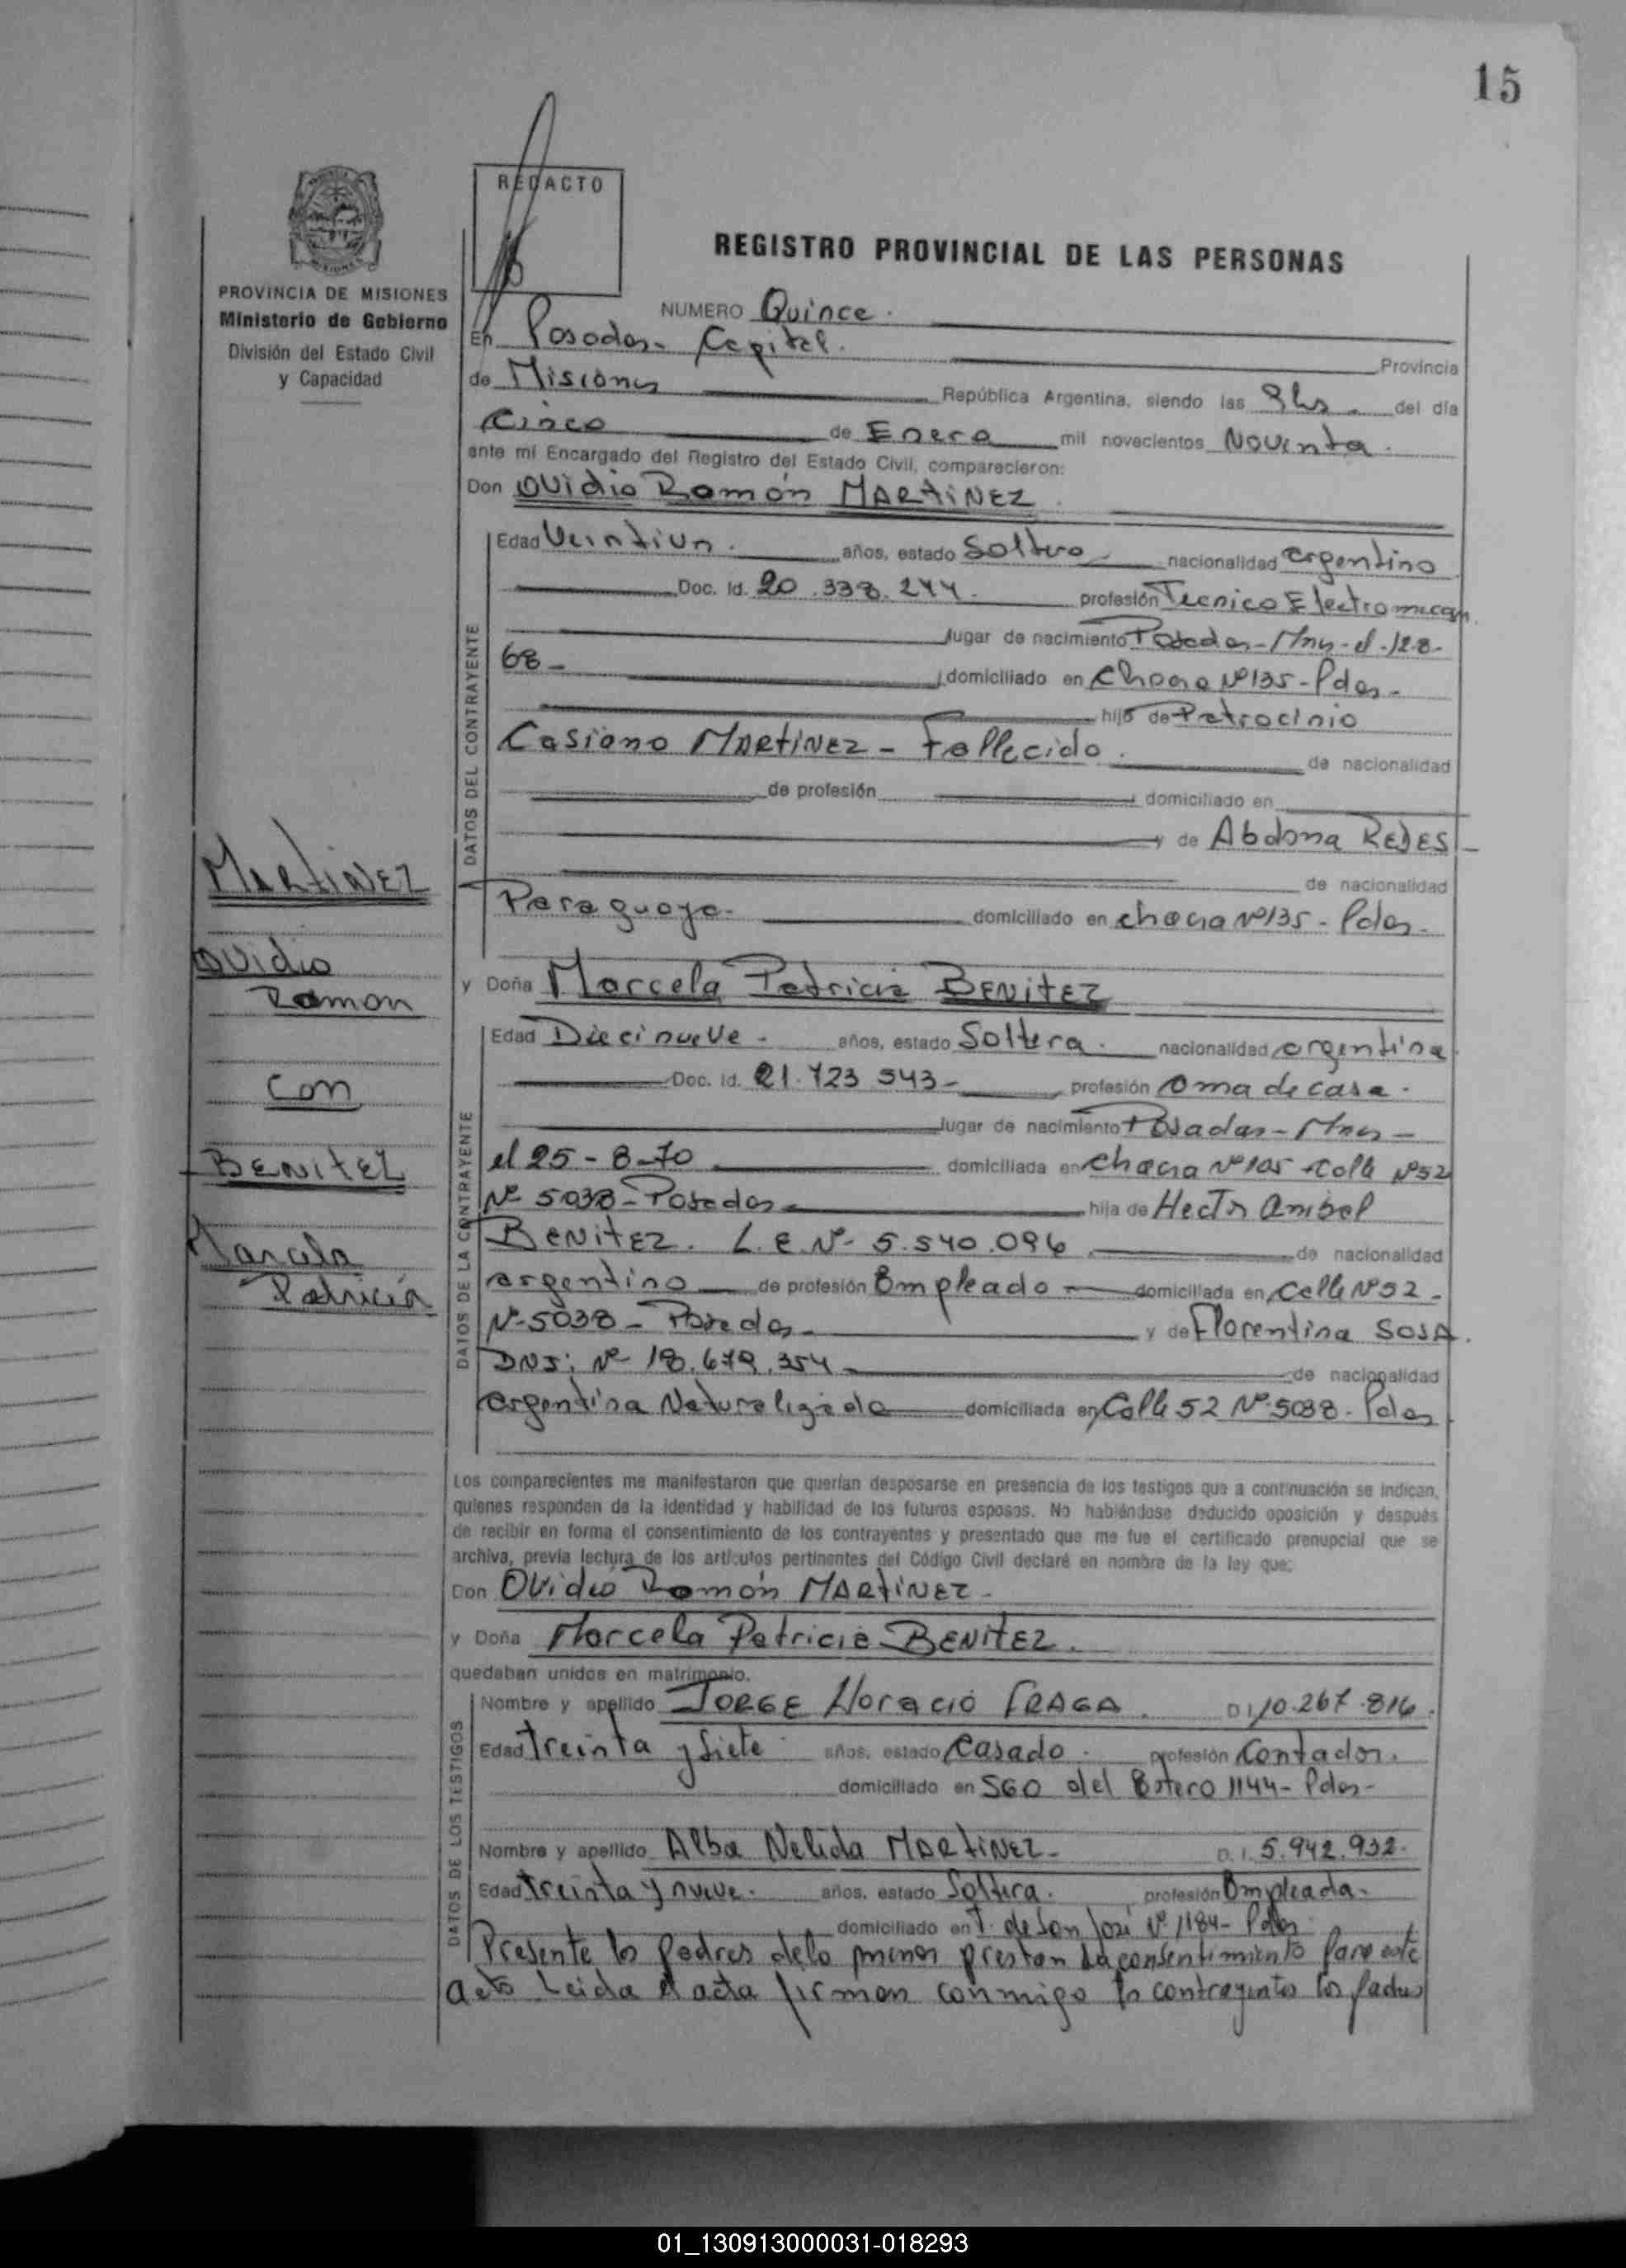 15
REDACTO
REGISTRO PROVINCIAL DE LAS PERSONAS
PROVINCIA DE MISIONES
Ministerio de Gobierno
División del Estado Civil
y Capacidad
NUMERO Quince.
En Posadas- Capital. Provincia
de Misiones República Argentina, siendo las del día
Cinco de Enero mil novecientos Noventa.
ante mí Encargado del Registro del Estado Civil, comparecieron:
Don Ovidio Ramón MARTINEZ
DATOS DEL CONTRAYENTE
Edad Veintiun. años, estado Soltero nacionalidad argentino
Doc. Id. 20.338.244. profesión Tecnico Electromecan
lugar de nacimiento Posadas-Mnes-el-12.8-
68- domiciliado en Chacra Nº135-Pdas-
hijo de Patrocinio
Casiano MARTINEZ - Fallecido. de nacionalidad
de profesión domiciliado en
y de Abdona REJES-
de nacionalidad
Paraguaya- domiciliado en chacra Nº135-Pdas-
y Doña Marcela Patricia BENITEZ
DATOS DE LA CONTRAYENTE
Edad Diecinueve. años, estado Soltera. nacionalidad argentina
Doc. Id. 21.723.543- profesión ama de casa.
lugar de nacimiento Posadas-Mnes-
el 25-8-70 domiciliada en chacra Nº105 Calle Nº52
Nº 5038-Posadas- hija de Hector Anibal
BENITEZ. L.E.Nº 5.540.096 de nacionalidad
argentino de profesión Empleado domiciliada en Calle Nº52-
Nº-5038-Posadas- y de Florentina SOSA.
DNI: Nº 18.679.354- de nacionalidad
argentina Naturalizada domiciliada en Calle 52 Nº5038-Pdas
MARTINEZ
Ovidio
Ramon
Con
BENITEZ
Marcela
Patricia
Los comparecientes me manifestaron que querían desposarse en presencia de los testigos que a continuación se indican,
quienes responden de la identidad y habilidad de los futuros esposos. No habiéndose deducido oposición y después
de recibir en forma el consentimiento de los contrayentes y presentado que me fue el certificado prenupcial que se
archiva, previa lectura de los artículos pertinentes del Código Civil declaré en nombre de la ley que:
Don Ovidio Ramón MARTINEZ-
y Doña Marcela Patricia BENITEZ.
quedaban unidos en matrimonio.
DATOS DE LOS TESTIGOS
Nombre y apellido JORGE Horacio FRAGA. D.I. 10.267.816.
Edad treinta y siete años, estado Casado. profesión Contador.
domiciliado en SGO del Estero 1144-Pdas-
Nombre y apellido Alba Nelida MARTINEZ- D.I. 5.942.932.
Edad treinta y nueve. años, estado Soltera. profesión Empleada-
domiciliado en T. de San José Nº 1184-Pdas
Presente los padres de la menor prestan su consentimiento para este
acto Leida el acta firman conmigo los contrayentes los padres
01_130913000031-018293